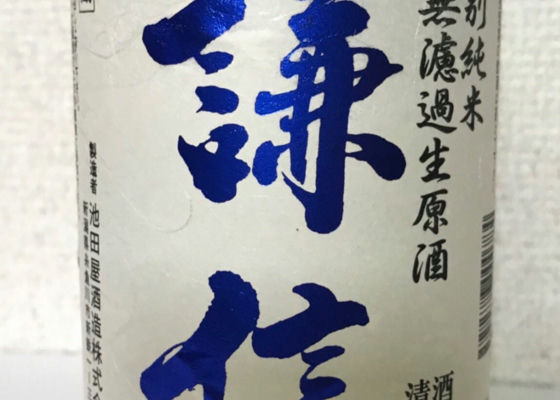 別純米
無濾過生原酒
謙信
清酒
製造者 池田屋酒造株式会